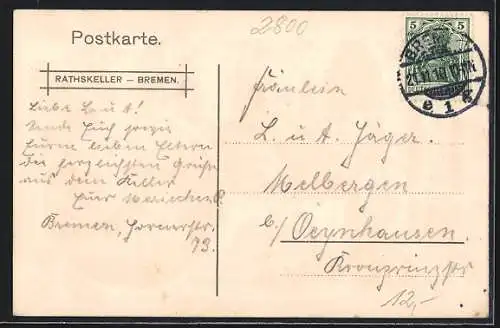 2800
Postkarte.
RATHSKELLER – BREMEN.
5 5
BREMEN
21.11.10
e 1 *
Liebe L. u. A!
Sende Euch sowie
Euren lieben Eltern
die herzlichsten Grüße
aus dem Keller
Euer
Bremen,
73.
Fräulein
L. u. A. Jäger.
Melbergen
b/ Oeynhausen.
Kronprinzstr
12,-